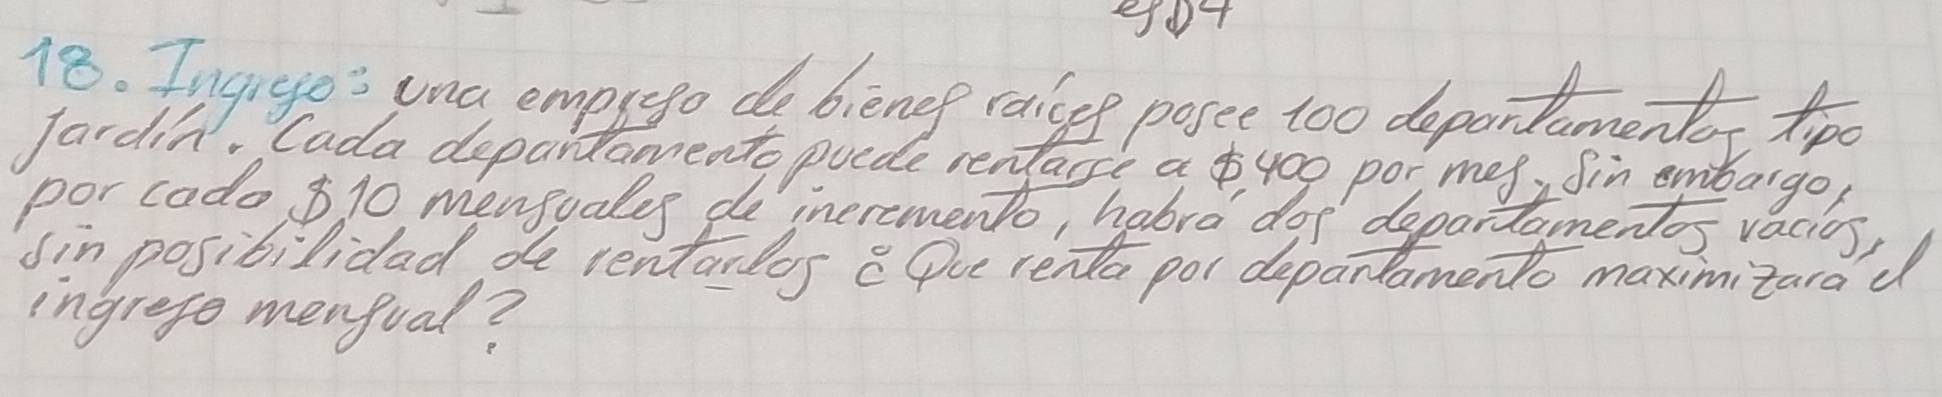 18. Ingreso: una empreso de bienes raíces posee 100 departamentos tipo
Jardín. Cada departamento puede rentarse a $400 por mes, sin embargo,
por cado $10 mensuales de incremento, habrá dos departamentos vacíos,
sin posibilidad de rentarlos ¿Que renta por departamento maximizara el
ingreso mensual?